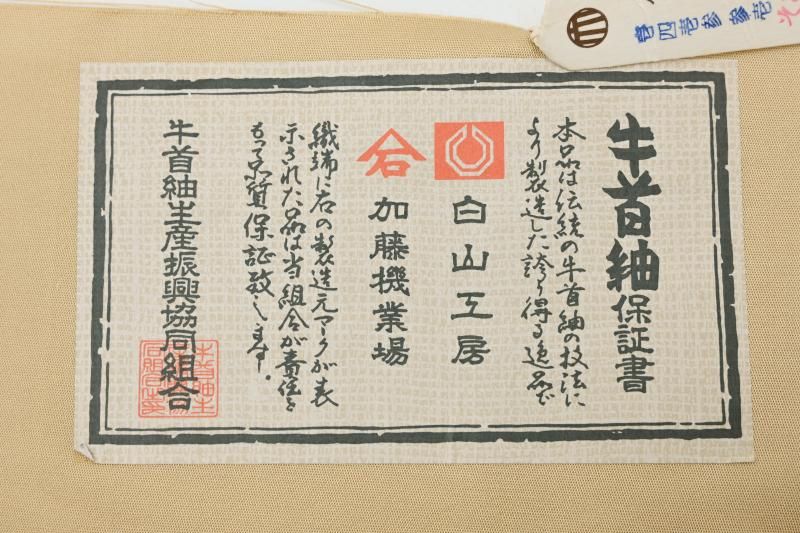 牛首紬保証書
本品は伝統の牛首紬の技法に
より製造した誇り得る逸品で
白山工房
石 加藤機業場
織端に右の製造元マークが表
示された品は当組合が責任を
もって品質保証致します。
牛首紬生産振興協同組合
宮四壱参参壱